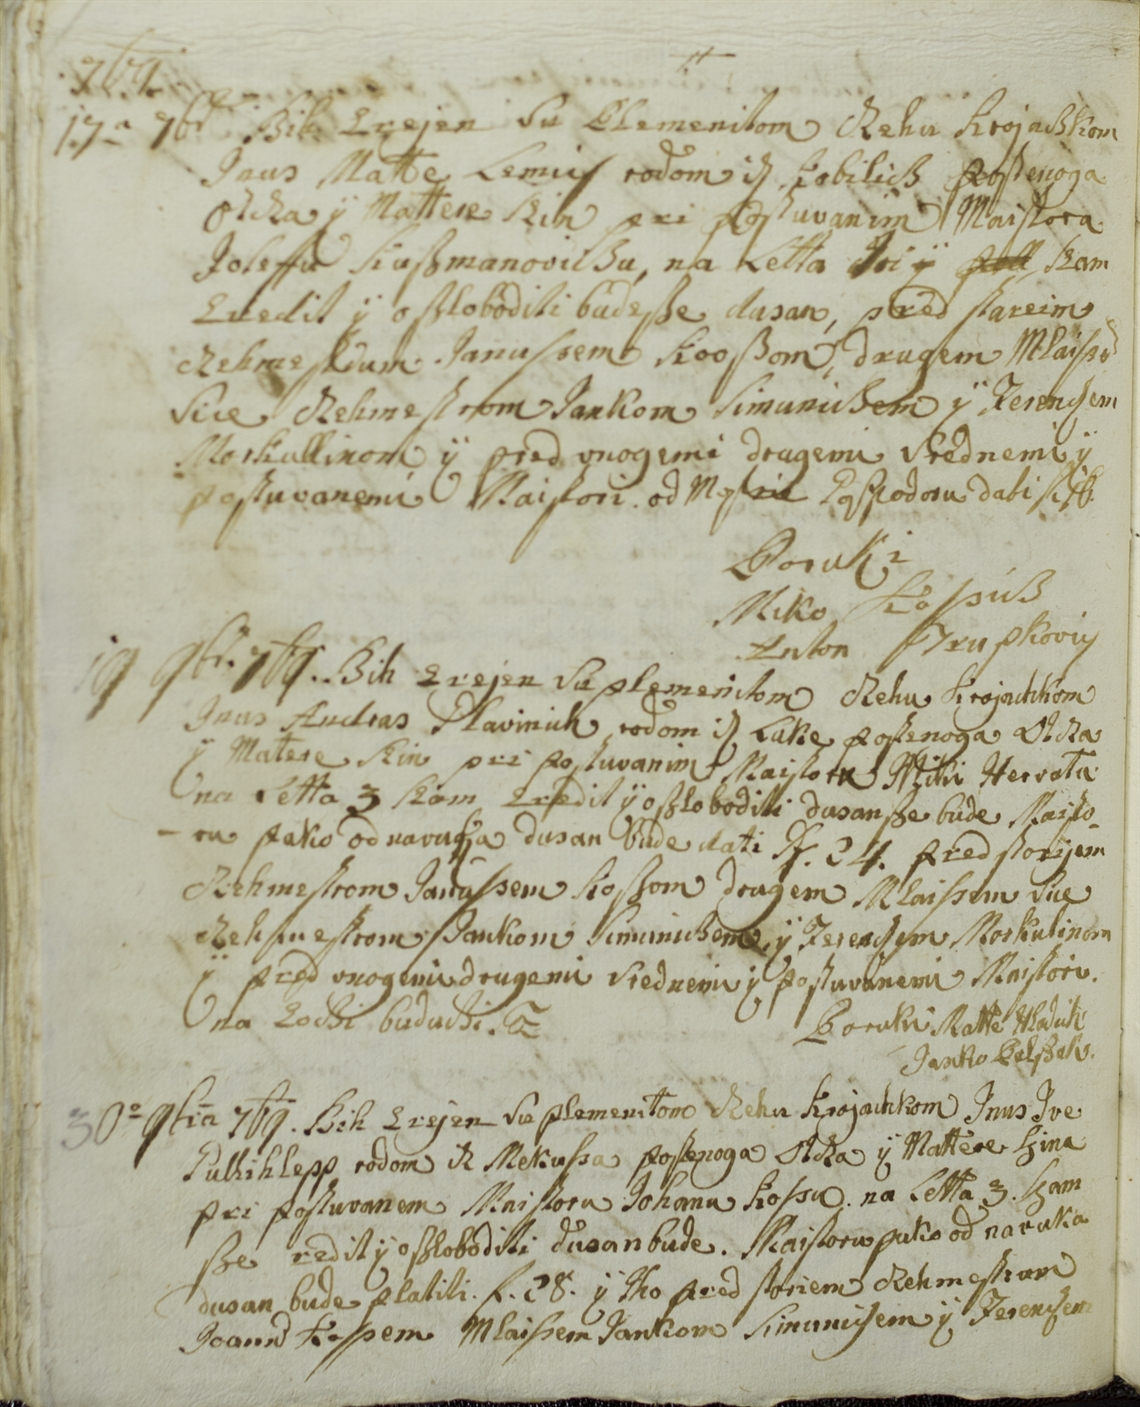 769.
17a 7br Bih Erejen vu Plemenitom Rehu Krojachkom
Inus Matte Lemiss rodom iz Kobilich postenoga
Otcza y Mattere Szin pri postuvanim Maistora
Joseffu Kussmanovichu, na Letta Tri y szam
Eredil y osloboditi budesse dusan, pred starim
Rehmestrum Janussem Kossom, drugem Mlaissi
Sive Rehmestrom Jankom Simunichem y Ferenczem
Morkullinom y pred vnogemi drugemi Vrednemi y
postuvanemi Maistori. od Gospodoru dati
Poruki
Miko Kossich
Anton Krupkovich
19 9br. 769. Bih Erejen vu plemenitom Rehu Krojachkom
Inus Andras Slavinich rodom iz Luke postenoga Otcza
y Matere Szin pri postuvanim Maistoru Miki Hervatu
na Letta 3 szam Eredil y osloboditi dusansse bude Maisto-
ru pako od navuka dusan bude dati Rf. 24. pred storijem
Rehmestrom Janussem Kossom drugem Mlaissem Sive
Rehmestrom Jankom Simunichem, y Ferenczem Morkulinom
y pred vnogemi drugemi Vrednemi y postuvanemi Maistori.
na Lochi buduchi.
Poruki Matte Hladich
Janko
30o 9bra 769. Bih Erejen vu plemenitom Rehu Krojachkom Inus Ive
rodom z Mekussa postenoga Otcza y Mattere Szina
pri postuvanem Maistoru Johanu Kossu. na Letta 3. szam
sse redil y osloboditi dusan bude. Maistoru pako od navuka
dusan bude platiti. f. 28. y to pred storiem Rehmestrom
Joannes Kossem Mlaissem Jankom Simunichem y Ferenczem